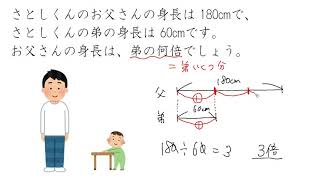 さとしくんのお父さんの身長は 180cmで、
さとしくんの弟の身長は 60cmです。
お父さんの身長は、弟の何倍でしょう。
= 弟いくつ分
180cm
父
①
60cm
弟
①
180÷60=3
3倍